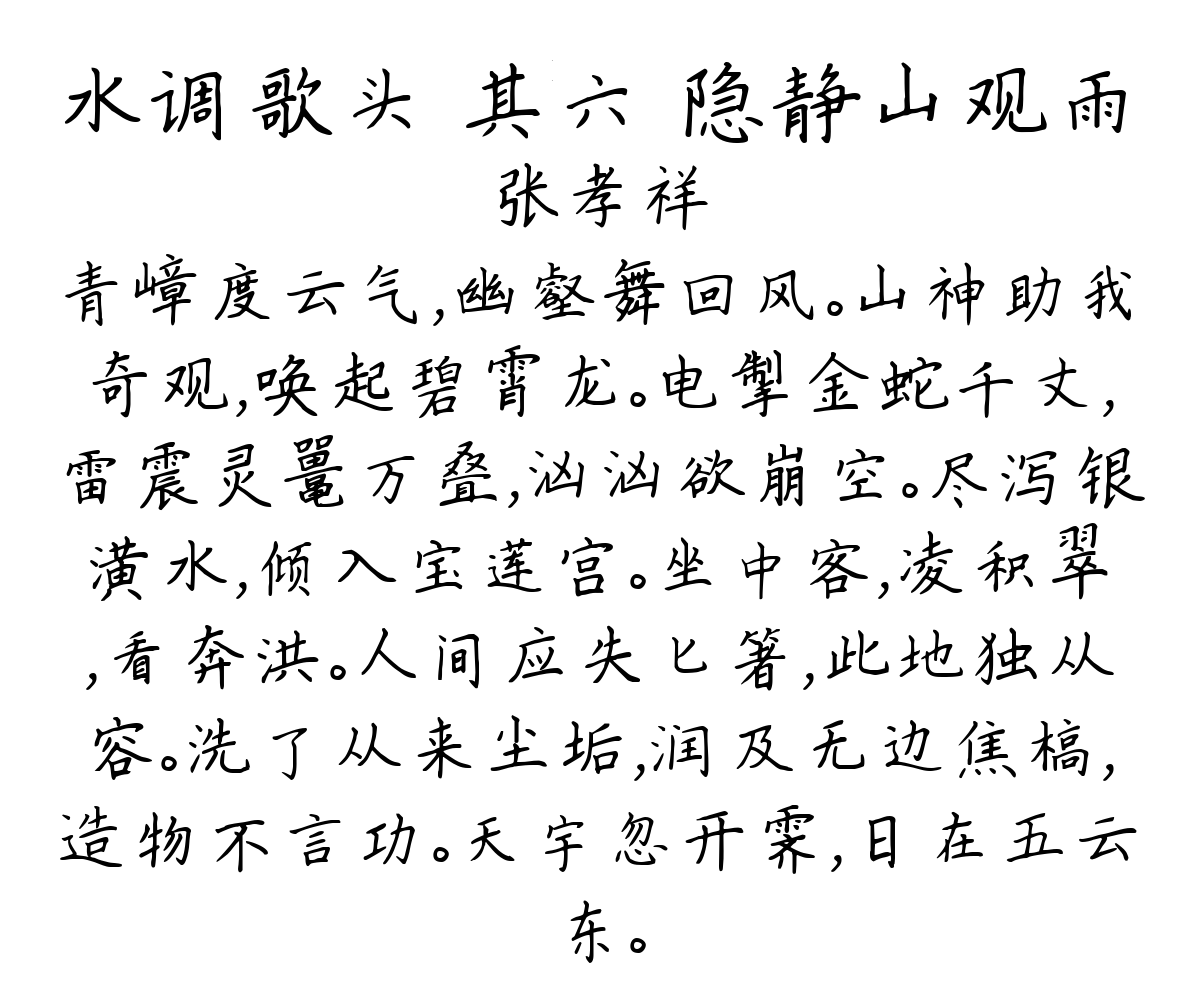 水调歌头 其六 隐静山观雨
张孝祥
青嶂度云气,幽壑舞回风。山神助我
奇观,唤起碧霄龙。电掣金蛇千丈,
雷震灵鼍万叠,汹汹欲崩空。尽泻银
潢水,倾入宝莲宫。坐中客,凌积翠
,看奔洪。人间应失匕箸,此地独从
容。洗了从来尘垢,润及无边焦槁,
造物不言功。天宇忽开霁,日在五云
东。